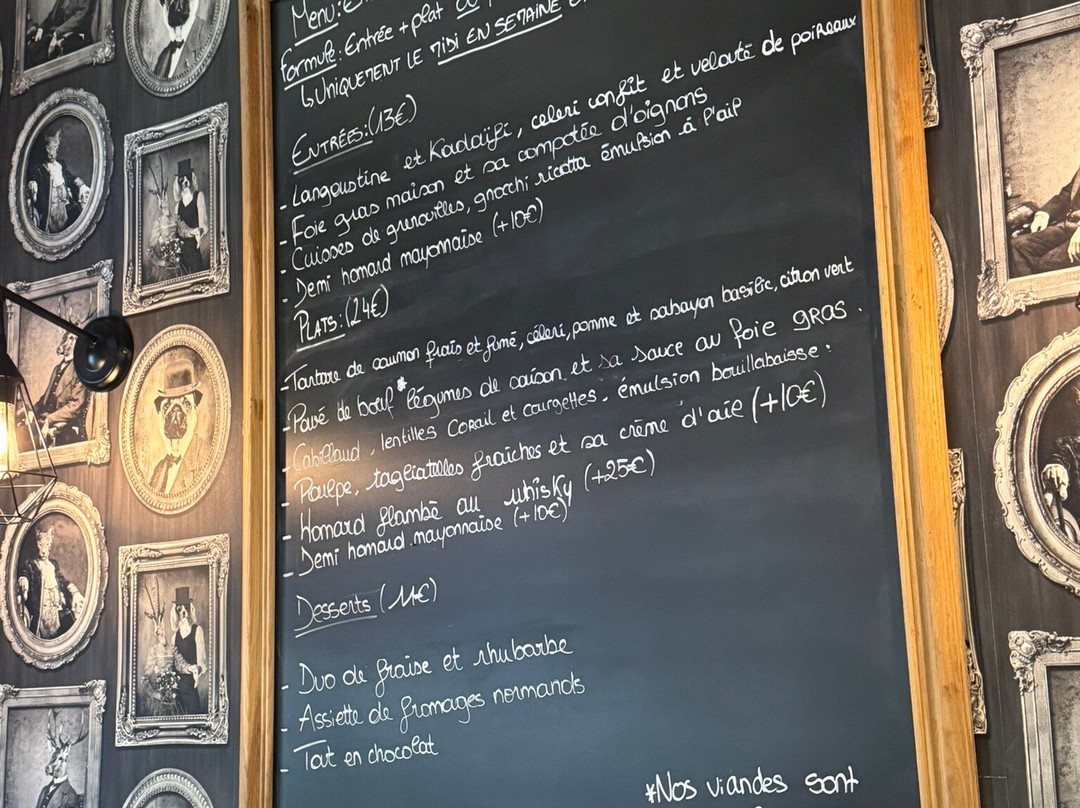 Menu:
Formule: Entrée + plat ou
↳ UNIQUEMENT LE MIDI EN SEMAINE
ENTRÉES: (13€)
- Langoustine et Kadaïfi, celeri confit et velouté de poireaux
- Foie gras maison et sa compotée d'oignons
- Cuisses de grenouilles, gnocchi ricotta émulsion à l'ail
- Demi homard mayonnaise (+10€)
PLATS: (24€)
- Tartare de saumon frais et fumé, céleri, pomme et sabayon basilic, citron vert
- Pavé de bœuf * légumes de saison et sa sauce au foie GRAS.
- Cabillaud, lentilles Corail et courgettes. émulsion bouillabaisse.
- Poulpe, tagliatelles fraîches et sa crème d'ail (+10€)
- Homard flambé au whisky (+25€)
- Demi homard mayonnaise (+10€)
Desserts (11€)
- Duo de fraise et rhubarbe
- Assiette de fromages normands
- Tout en chocolat
*Nos viandes sont